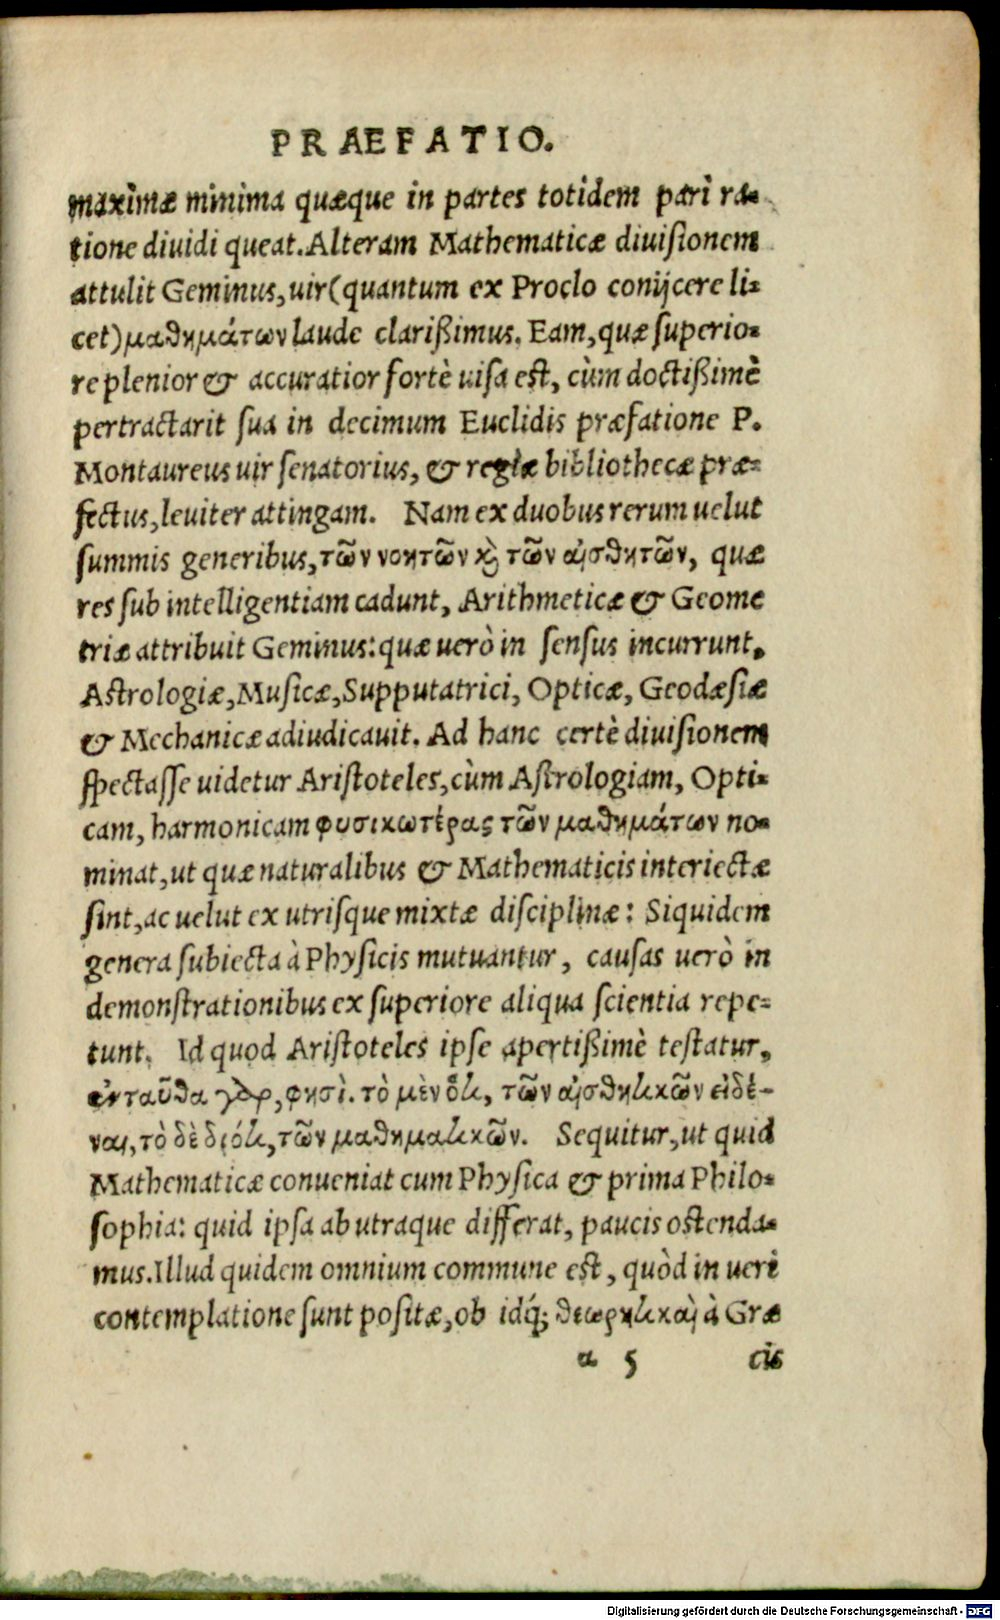 PRAEFATIO.
maximæ minima quæque in partes totidem pari ra-
tione diuidi queat. Alteram Mathematicæ diuiſionem
attulit Geminus, uir (quantum ex Proclo conijcere li-
cet) μαθημάτων laude clarißimus. Eam, quæ ſuperio-
re plenior & accuratior fortè uiſa eſt, cùm doctißimè
pertractarit ſua in decimum Euclidis præfatione P.
Montaureus uir ſenatorius, & regiæ bibliothecæ præ-
fectus, leuiter attingam. Nam ex duobus rerum uelut
ſummis generibus, τῶν νοητῶν κὶ τῶν αἰσθητῶν, quæ
res ſub intelligentiam cadunt, Arithmeticæ & Geome
triæ attribuit Geminus: quæ uerò in ſenſus incurrunt,
Aſtrologiæ, Muſicæ, Supputatrici, Opticæ, Geodæſiæ
& Mechanicæ adiudicauit. Ad hanc certè diuiſionem
ſpectaſſe uidetur Ariſtoteles, cùm Aſtrologiam, Opti-
cam, harmonicam φυσικωτέρας τῶν μαθημάτων no-
minat, ut quæ naturalibus & Mathematicis interiectæ
ſint, ac uelut ex utriſque mixtæ diſciplinæ: Siquidem
genera ſubiecta à Phyſicis mutuantur, cauſas uerò in
demonſtrationibus ex ſuperiore aliqua ſcientia repe-
tunt. Id quod Ariſtoteles ipſe apertißimè teſtatur,
ἐνταῦθα γὰρ, φησὶ. τὸ μὲν ὅτι, τῶν αἰσθητικῶν εἰδέ-
ναι, τὸ δὲ διότι, τῶν μαθηματικῶν. Sequitur, ut quid
Mathematicæ conueniat cum Phyſica & prima Philo-
ſophia: quid ipſa ab utraque differat, paucis oſtenda-
mus. Illud quidem omnium commune eſt, quòd in ueri
contemplatione ſunt poſitæ, ob idq́; θεωρητικαὶ à Græ
a 5 cis
Digitalisierung gefördert durch die Deutsche Forschungsgemeinschaft - DFG